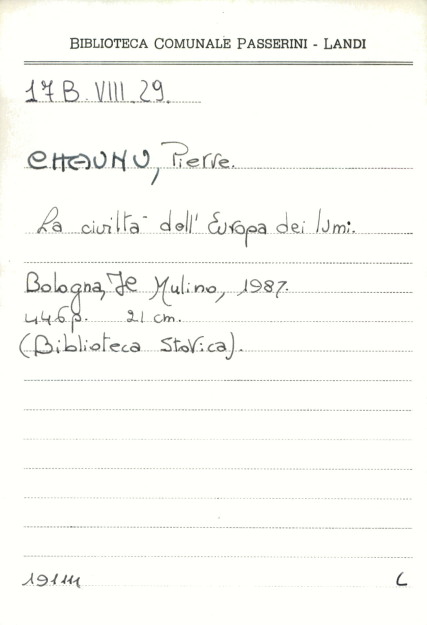 BIBLIOTECA COMUNALE PASSERINI - LANDI
17 B. VIII. 29.
CHAUNU, Pierre.
La civiltà dell' Europa dei lumi.
Bologna, Il Mulino, 1987.
446 p. 21 cm.
(Biblioteca Storica).
C